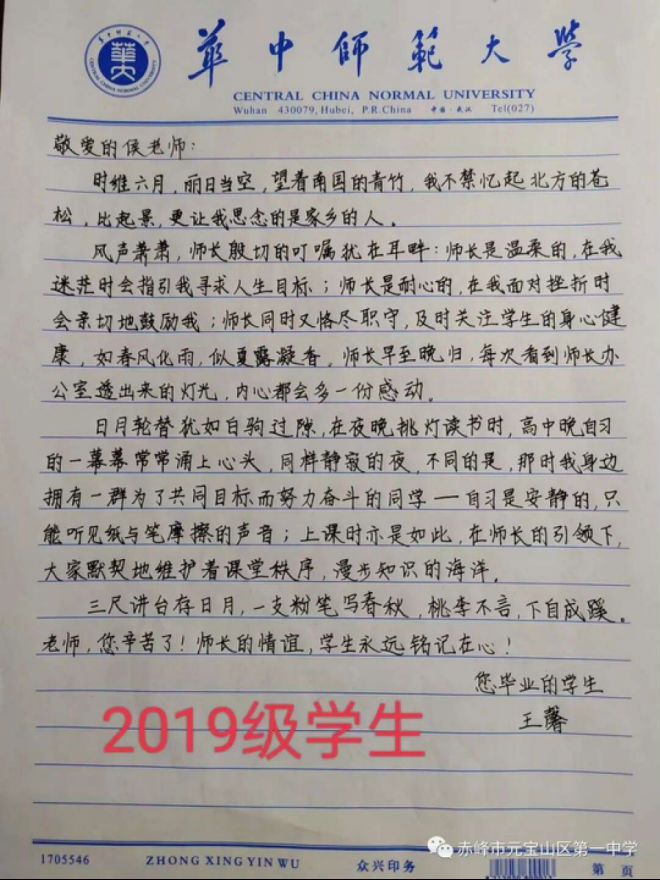 華中師範大學
CENTRAL CHINA NORMAL UNIVERSITY
Wuhan 430079, Hubei, P.R.China 中国·武汉 Tel(027)
敬爱的侯老师:
时维六月,丽日当空,望着南国的青竹,我不禁忆起北方的苍
松,比起景,更让我思念的是家乡的人。
风声萧萧,师长殷切的叮嘱犹在耳畔:师长是温柔的,在我
迷茫时会指引我寻求人生目标;师长是耐心的,在我面对挫折时
会亲切地鼓励我;师长同时又恪尽职守,及时关注学生的身心健
康,如春风化雨,似夏露凝香。师长早至晚归,每次看到师长办
公室透出来的灯光,内心都会多一份感动。
日月轮替犹如白驹过隙,在夜晚挑灯读书时,高中晚自习
的一幕幕常常涌上心头,同样静寂的夜,不同的是,那时我身边
拥有一群为了共同目标而努力奋斗的同学——自习是安静的,只
能听见纸与笔摩擦的声音;上课时亦是如此,在师长的引领下,
大家默契地维护着课堂秩序,漫步知识的海洋。
三尺讲台存日月,一支粉笔写春秋,桃李不言,下自成蹊。
老师,您辛苦了!师长的情谊,学生永远铭记在心!
您毕业的学生
王馨
2019级学生
赤峰市元宝山区第一中学
1705546 ZHONG XING YIN WU 众兴印务 第 页